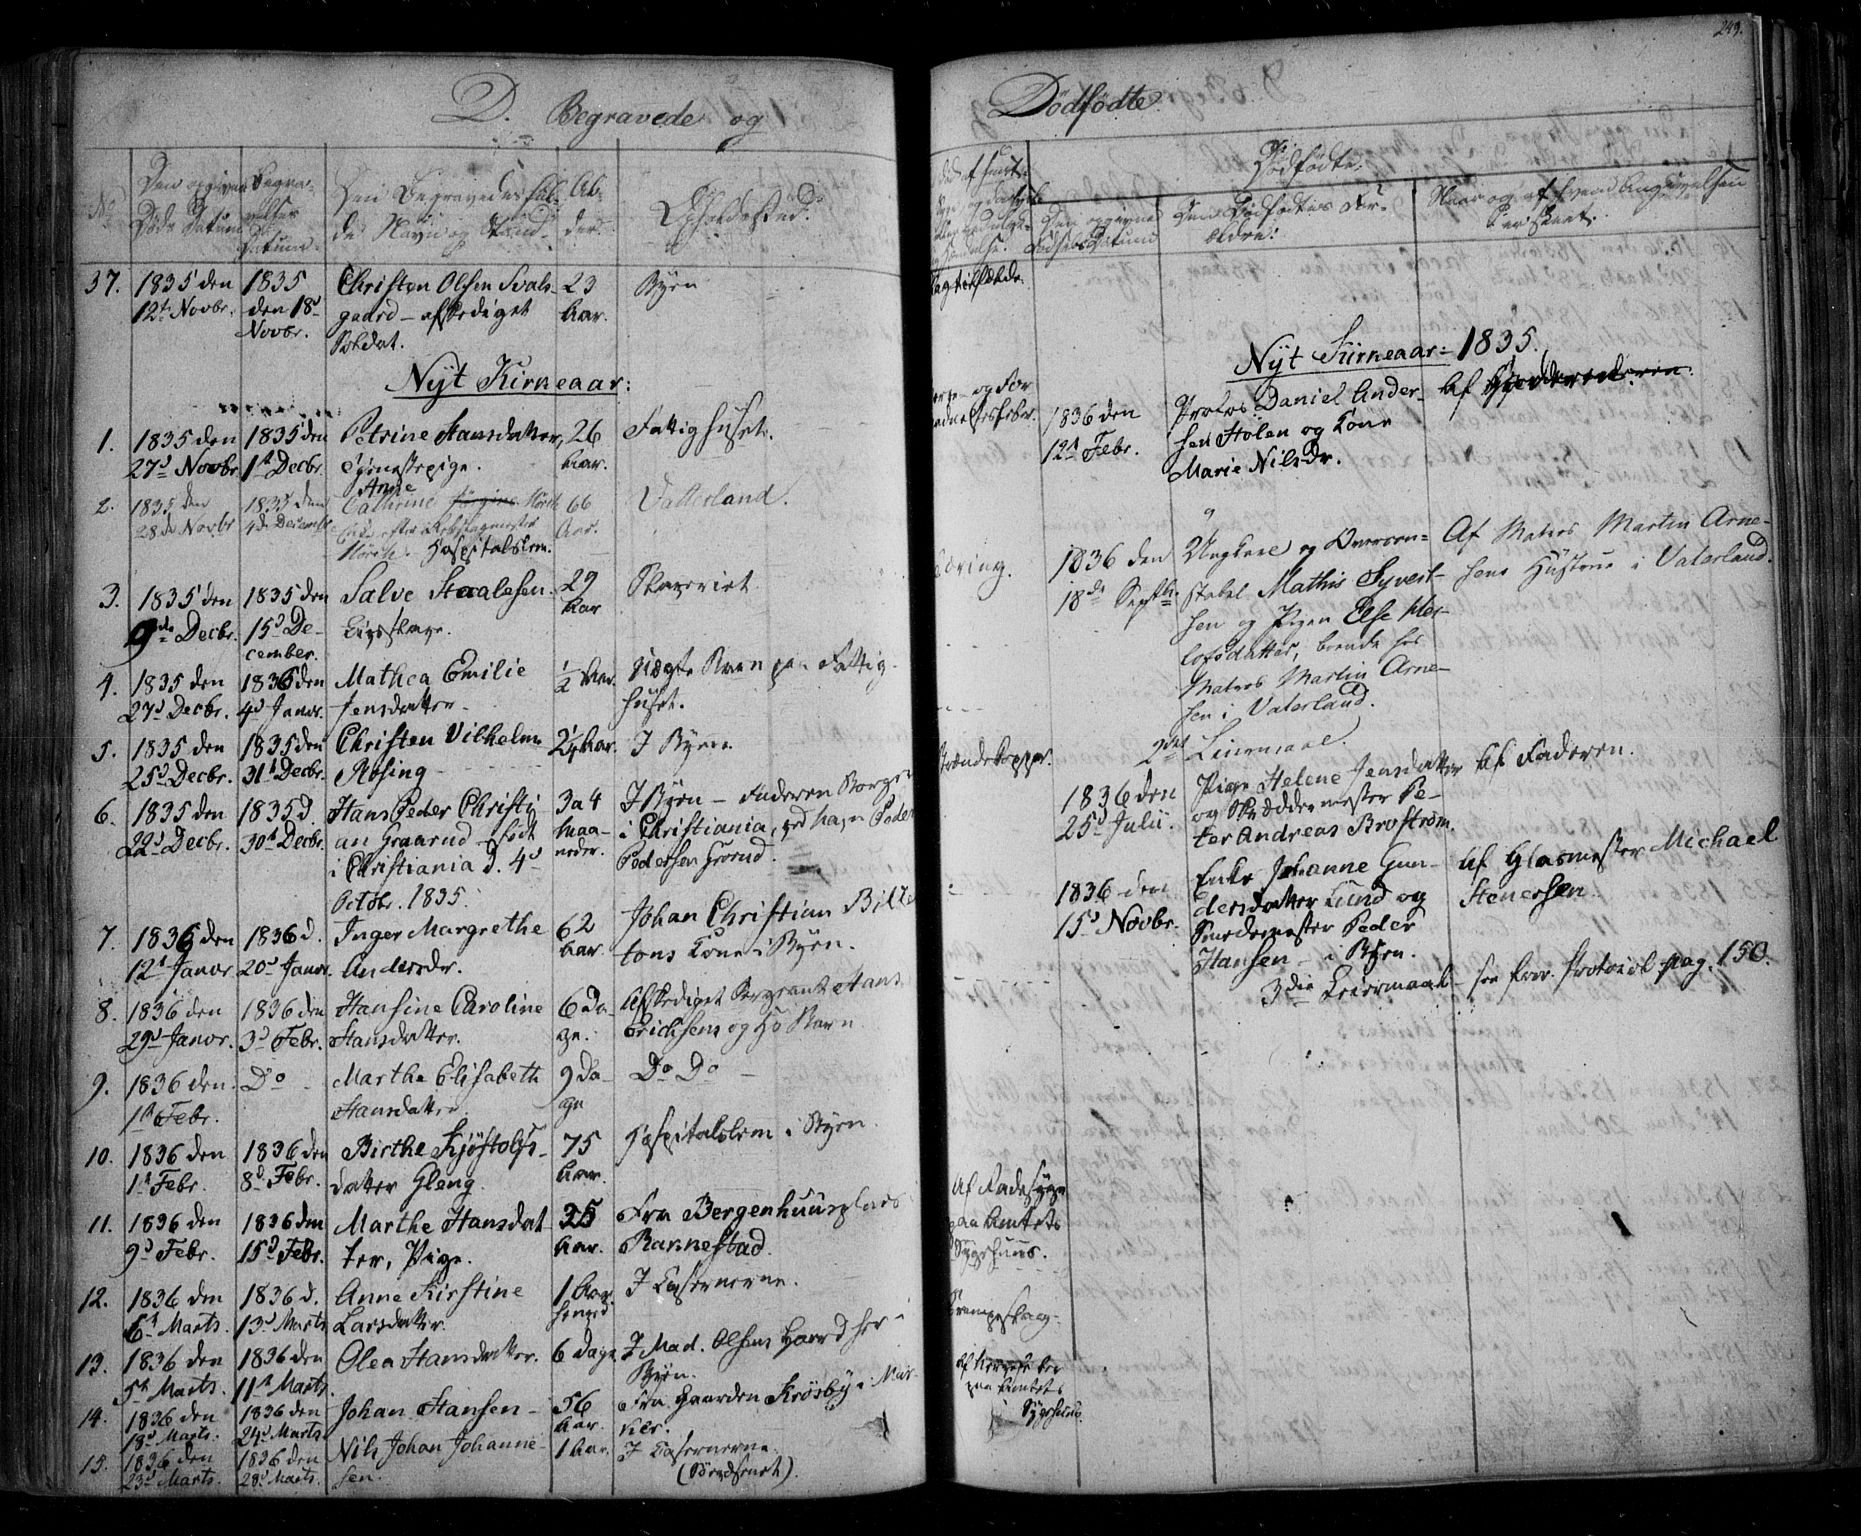 D. Begravede og
No
Den opgivne Døds Datum
Begravelses Datum
Den Begravedes fulde Navn og Stand.
Alder.
Opholdssted.
37. 1835 den 12te Novbr. 1835 den 18d Novbr. Christen Olsen Svalsgaard – afskediget Soldat. 23 Aar. Byen
Nyt Kirkeaar:
1. 1835 den 27d Novbr 1835 den 1t Decbr. Petrine Hansdatter, Tjenestepige. 26 Aar. Fattighuset.
2. 1835 den 28de Novbr 1835 den 4de Decembr. Anne Cathrine Hospitalslem. 66 Aar. Vatterland.
3. 1835 den 9de Decbr. 1835 den 15d December. Salve Staalesen. Livsslave. 29 Aar Slaveriet
4. 1835 den 27d Decbr. 1836 den 4d Janvr. Mathea Emilie Jensdatter 1/2 Aar. Uægte Barn paa Fattighuset.
5. 1835 den 25d Decbr. 1835 den 31t Decbr. Christen Vilhelm Røsing 2 1/4 Aar. I Byen
6. 1835 den 22d Decbr. 1835 d. 30t Decbr. Hans Peder Christian Graarud – født i Christiania d. 4d Octbr. 1835. 3 a 4 Maaneder. I Byen – Faderen Borger i Christiania, ved Navn Peder Pedersen Grorud.
7. 1836 den 12t Janvr 1836 d. 20d Janvr. Inger Margrethe Andersdr. 62 Aar. Johan Christian Biltetons Kone i Byen.
8. 1836 den 29d Janvr. 1836 den 3d Febr. Hansine Caroline Hansdatter. 6 Dage. Afskediget Sergeant Hans Erichsens og H. Barn
9. 1836 den 1t Febr. Do Marthe Elisabeth Hansdatter. 9 Dage Do Do
10. 1836 den 1t Febr. 1836 den 8d Febr. Birthe Kjøstolfsdatter Gleng. 75 Aar. Hospitalslem i Byen.
11. 1836 den 9d Febr. 1836 den 15d Febr. Marthe Hansdatter, Pige. 35 Aar. Fra Bergenhuusplads Rannestad.
12. 1836 den 6t Marts. 1836 d. 13d Marts Anne Kirstine Larsdatter. 1 Aar I Casernerne.
13. 1836 den 5t Marts. 1836 den 11t Marts. Olea Hansdatter. 6 Dage. I Mad. Olsens Gaard her i Byen.
14. 1836 den 18d Marts. 1836 den 24d Marts. Johan Hansen 56 Aar. Fra Gaarden Krøsby i
15. 1836 den 23d Marts. 1836 den 28d Marts. Nils Johan Johannesen. 1 Aar. I Casernerne.
249.
Dødfødte
Dødfødte.
Den opgivne Fødsels Datum
Den Dødfødtes Forældre.
Naar og af hvem Angivelsen er skeet.
Nyt Kirkeaar: 1835.
1836 den 12te Febr.
Daniel Andersen Holen og Kone
Marie Nilsdr.
Af
1836 den 18de Septbr.
Ungkarl og
Mathis Syvertsen og Pigen Else
boende hos
Matros Martin Arnesen i Vaterland.
2det Leiermaal.
Af Matros Martin Arnesens Hustrue i Vaterland.
1836 den 25d Julii.
Pigen Helene Jensdatter
og Skræddermester Peter Andreas Brostrøm.
Af Faderen.
1836 den 15d Novbr.
Enke Johanne Gundersdatter Lund og
Smedemester Peder Hansen – i Byen.
Af Glasmester Michael Stenersen
3die Leiermaal – see Protocol pag. 150.
Af Radesyge paa Amtets Sygehuus.
paa Amtets Sygehuus.